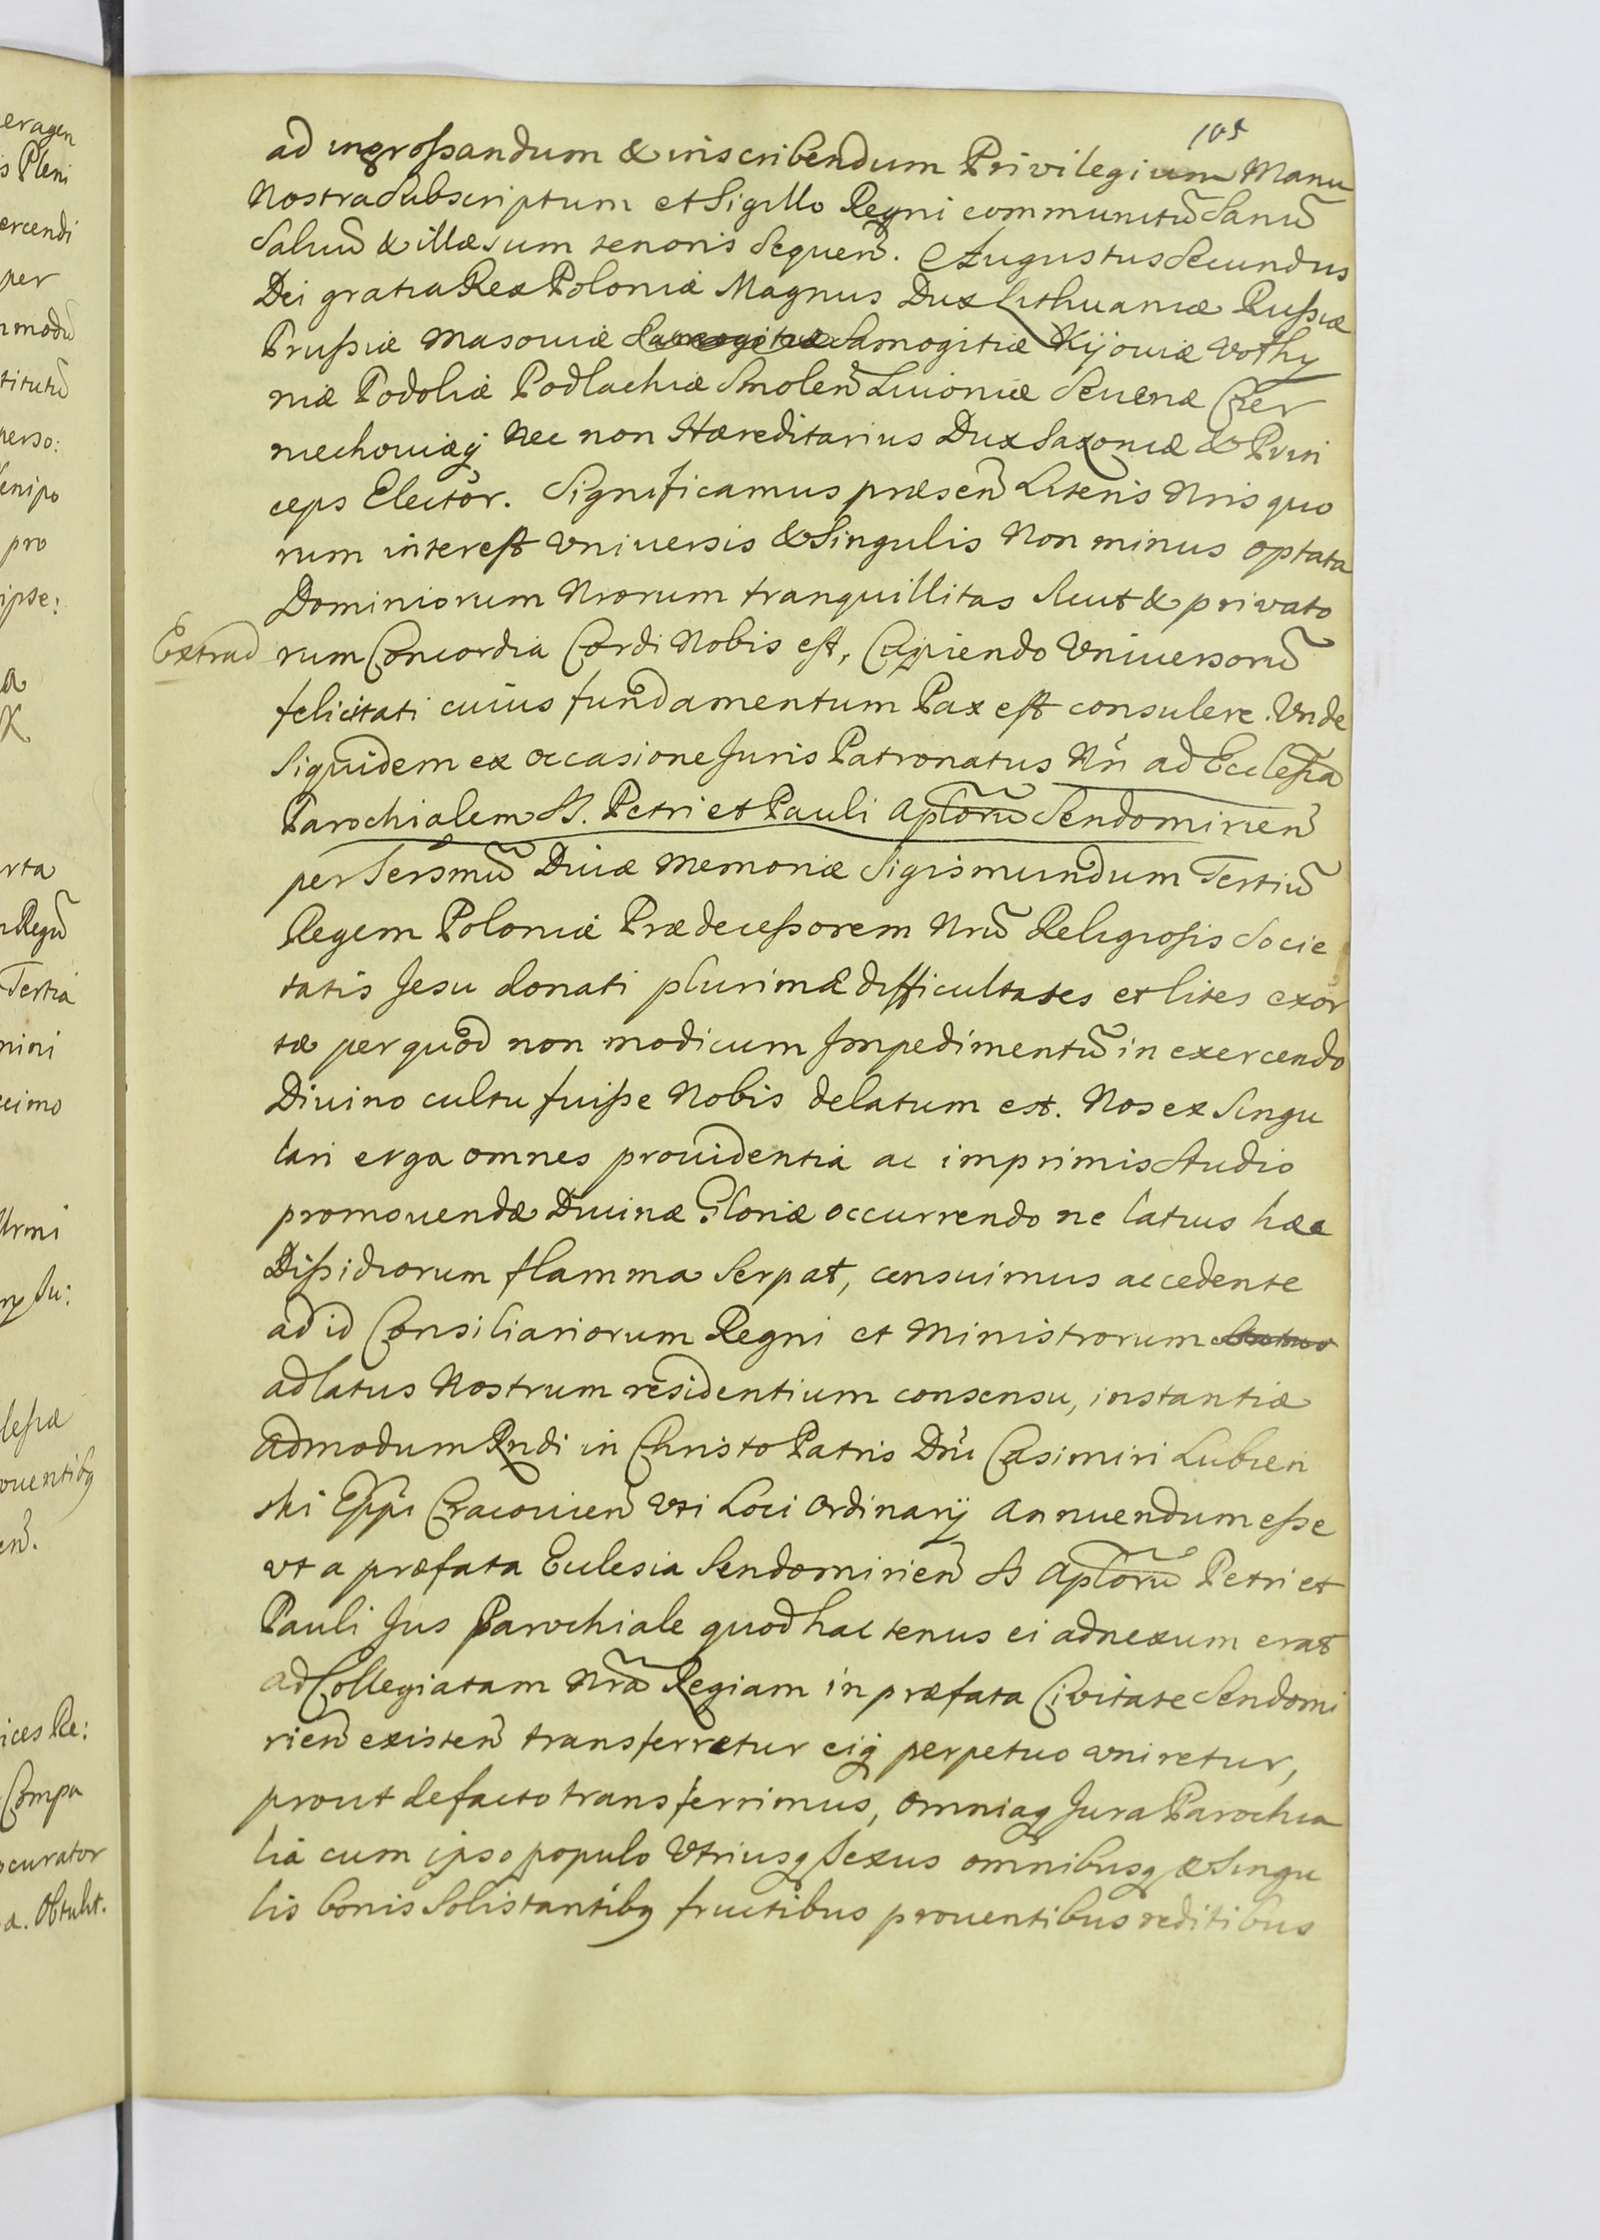 105
ad ingroſsandum & inscribendum Privilegium Manu
Nostra Subscriptum et Sigillo Regni communitū Sanū
Salvū & illæsum tenoris Sequen̄. Augustus Secundus
Dei gratia Rex Poloniæ Magnus Dux Lithuaniæ Ruſsiæ
Pruſsiæ Masouiæ Samogitiæ Kijouiæ Volhy
niæ Podoliæ Podlachiæ Smolen̄ Liuoniæ Seueriæ Czer
niechouiæq́ Nec non Hæreditarius Dux Saxoniæ & Prin
ceps Elector. Significamus præsen̄ Literis Nris quo
rum interest vniuersis & Singulis Non minus optata
Dominiorum Nrorum tranquillitas Sicut & privato
Extrad
rum Concordia Cordi Nobis est, Cupiendo Vniuersorū
felicitati cuius fundamentum Pax est consulere. Vnde
Siquidem ex occasione Juris Patronatus Nri ad Eccleſia
Parochialem SS. Petri et Pauli Aplorū Sendomirien̄
per Sersmū Diuæ Memoriæ Sigismundum Tertiū
Regem Poloniæ Prædeceſsorem Nrū Religiosis Socie
tatis Jesu donati plurimæ difficultates et lites exor
tæ per quod non modicum Impedimentū in exercendo
Diuino cultu fuiſse Nobis delatum est. Nos ex Singu
lari erga omnes prouidentia ac imprimis Studio
promouendæ Diuinæ Gloriæ occurrendo ne latius hæc
Diſsidiorum flamma Serpat, censuimus accedente
ad id Consiliariorum Regni et Ministrorum
ad latus Nostrum residentium consensu, instantiæ
Admodum Rndi in Christo Patris Dni Casimiri Lubien
ski Eppi Cracouien̄ Vti Loci Ordinarij Annuendum eſse
vt a præfata Eccelesia Sendomirien̄ SS Aplorū Petri et
Pauli Jus Parochiale quod hactenus ei adnexum erat
ad Collegiatam Nrā Regiam in præfata Civitate Sendomi
rien̄ existen̄ transferretur eiq́ perpetuo vniretur,
prout de facto transferrimus, omniaq́ Jura Parochia
lia cum ipso populo Vtriusq́ Sexus omnibusq́ & Singu
lis bonis Solistantibq fructibus prouentibus reditibus